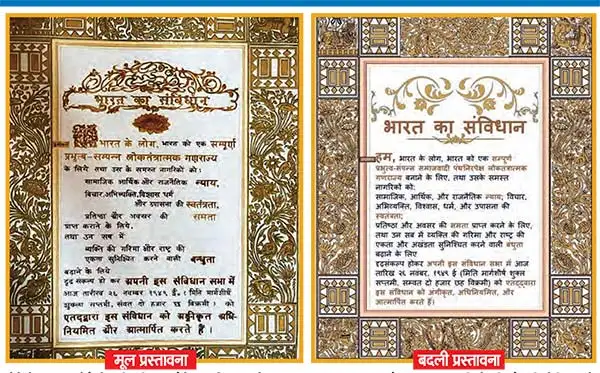 भारत का संविधान
हम
भारत के लोग, भारत को एक सम्पूर्ण
प्रभुत्व-सम्पन्न लोकतंत्रात्मक गणराज्य
के लिये तथा उस के समस्त नागरिकों को:
सामाजिक आर्थिक और राजनैतिक न्याय,
विचार,अभिव्यक्ति,विश्वास धर्म
और उपासना की स्वतंत्रता,
प्रतिष्ठा और अवसर की समता
प्राप्त कराने के लिये,
तथा उन सब में
व्यक्ति की गरिमा और राष्ट्र की
एकता सुनिश्चित करने वाली बन्धुता
बढ़ाने के लिये
दृढ़ संकल्प हो कर अपनी इस संविधान सभा में
आज तारीख २६ नवम्बर, १९४९ ई॰ ( मिति मार्गशीर्ष
शुक्ला सप्तमी, संवत् दो हजार छः विक्रमी ) को
एतद्द्वारा इस संविधान को अङ्गीकृत अधि-
नियमित और आत्मार्पित करते हैं।
मूल प्रस्तावना
भारत का संविधान
हम, भारत के लोग, भारत को एक सम्पूर्ण
प्रभुत्व-संपन्न समाजवादी पंथनिरपेक्ष लोकतंत्रात्मक
गणराज्य बनाने के लिए, तथा उसके समस्त
नागरिकों को:
सामाजिक, आर्थिक, और राजनैतिक न्याय; विचार,
अभिव्यक्ति, विश्वास, धर्म, और उपासना की
स्वतंत्रता;
प्रतिष्ठा और अवसर की समता प्राप्त करने के लिए,
तथा उन सब में व्यक्ति की गरिमा और राष्ट्र की
एकता और अखंडता सुनिश्चित करने वाली बंधुता
बढ़ाने के लिए
दृढ़संकल्प होकर अपनी इस संविधान सभा में आज
तारीख २६ नवंबर, १९४९ ई (मिति मार्गशीर्ष शुक्ल
सप्तमी, सम्वत दो हजार छह विक्रमी) को एतद्द्वारा
इस संविधान को अंगीकृत, अधिनियमित, और
आत्मार्पित करते हैं।
बदली प्रस्तावना